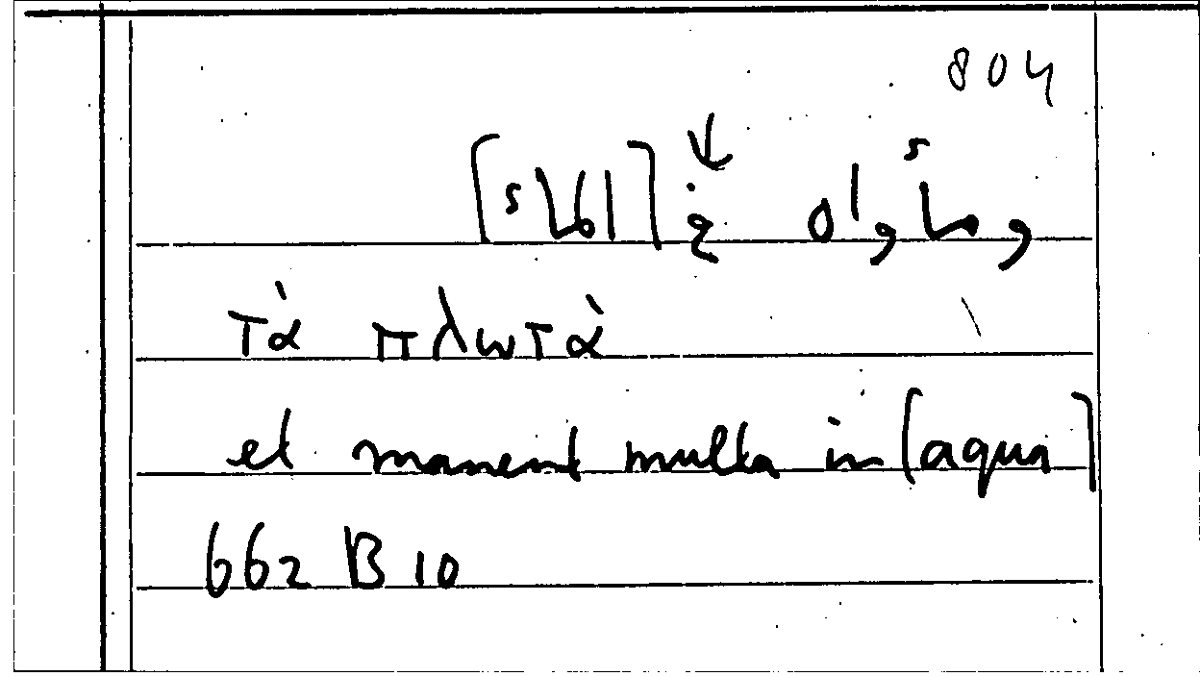 804
ومأواه في [الماء]
τὰ πλωτὰ
et manent multa in [aqua]
662 B 10